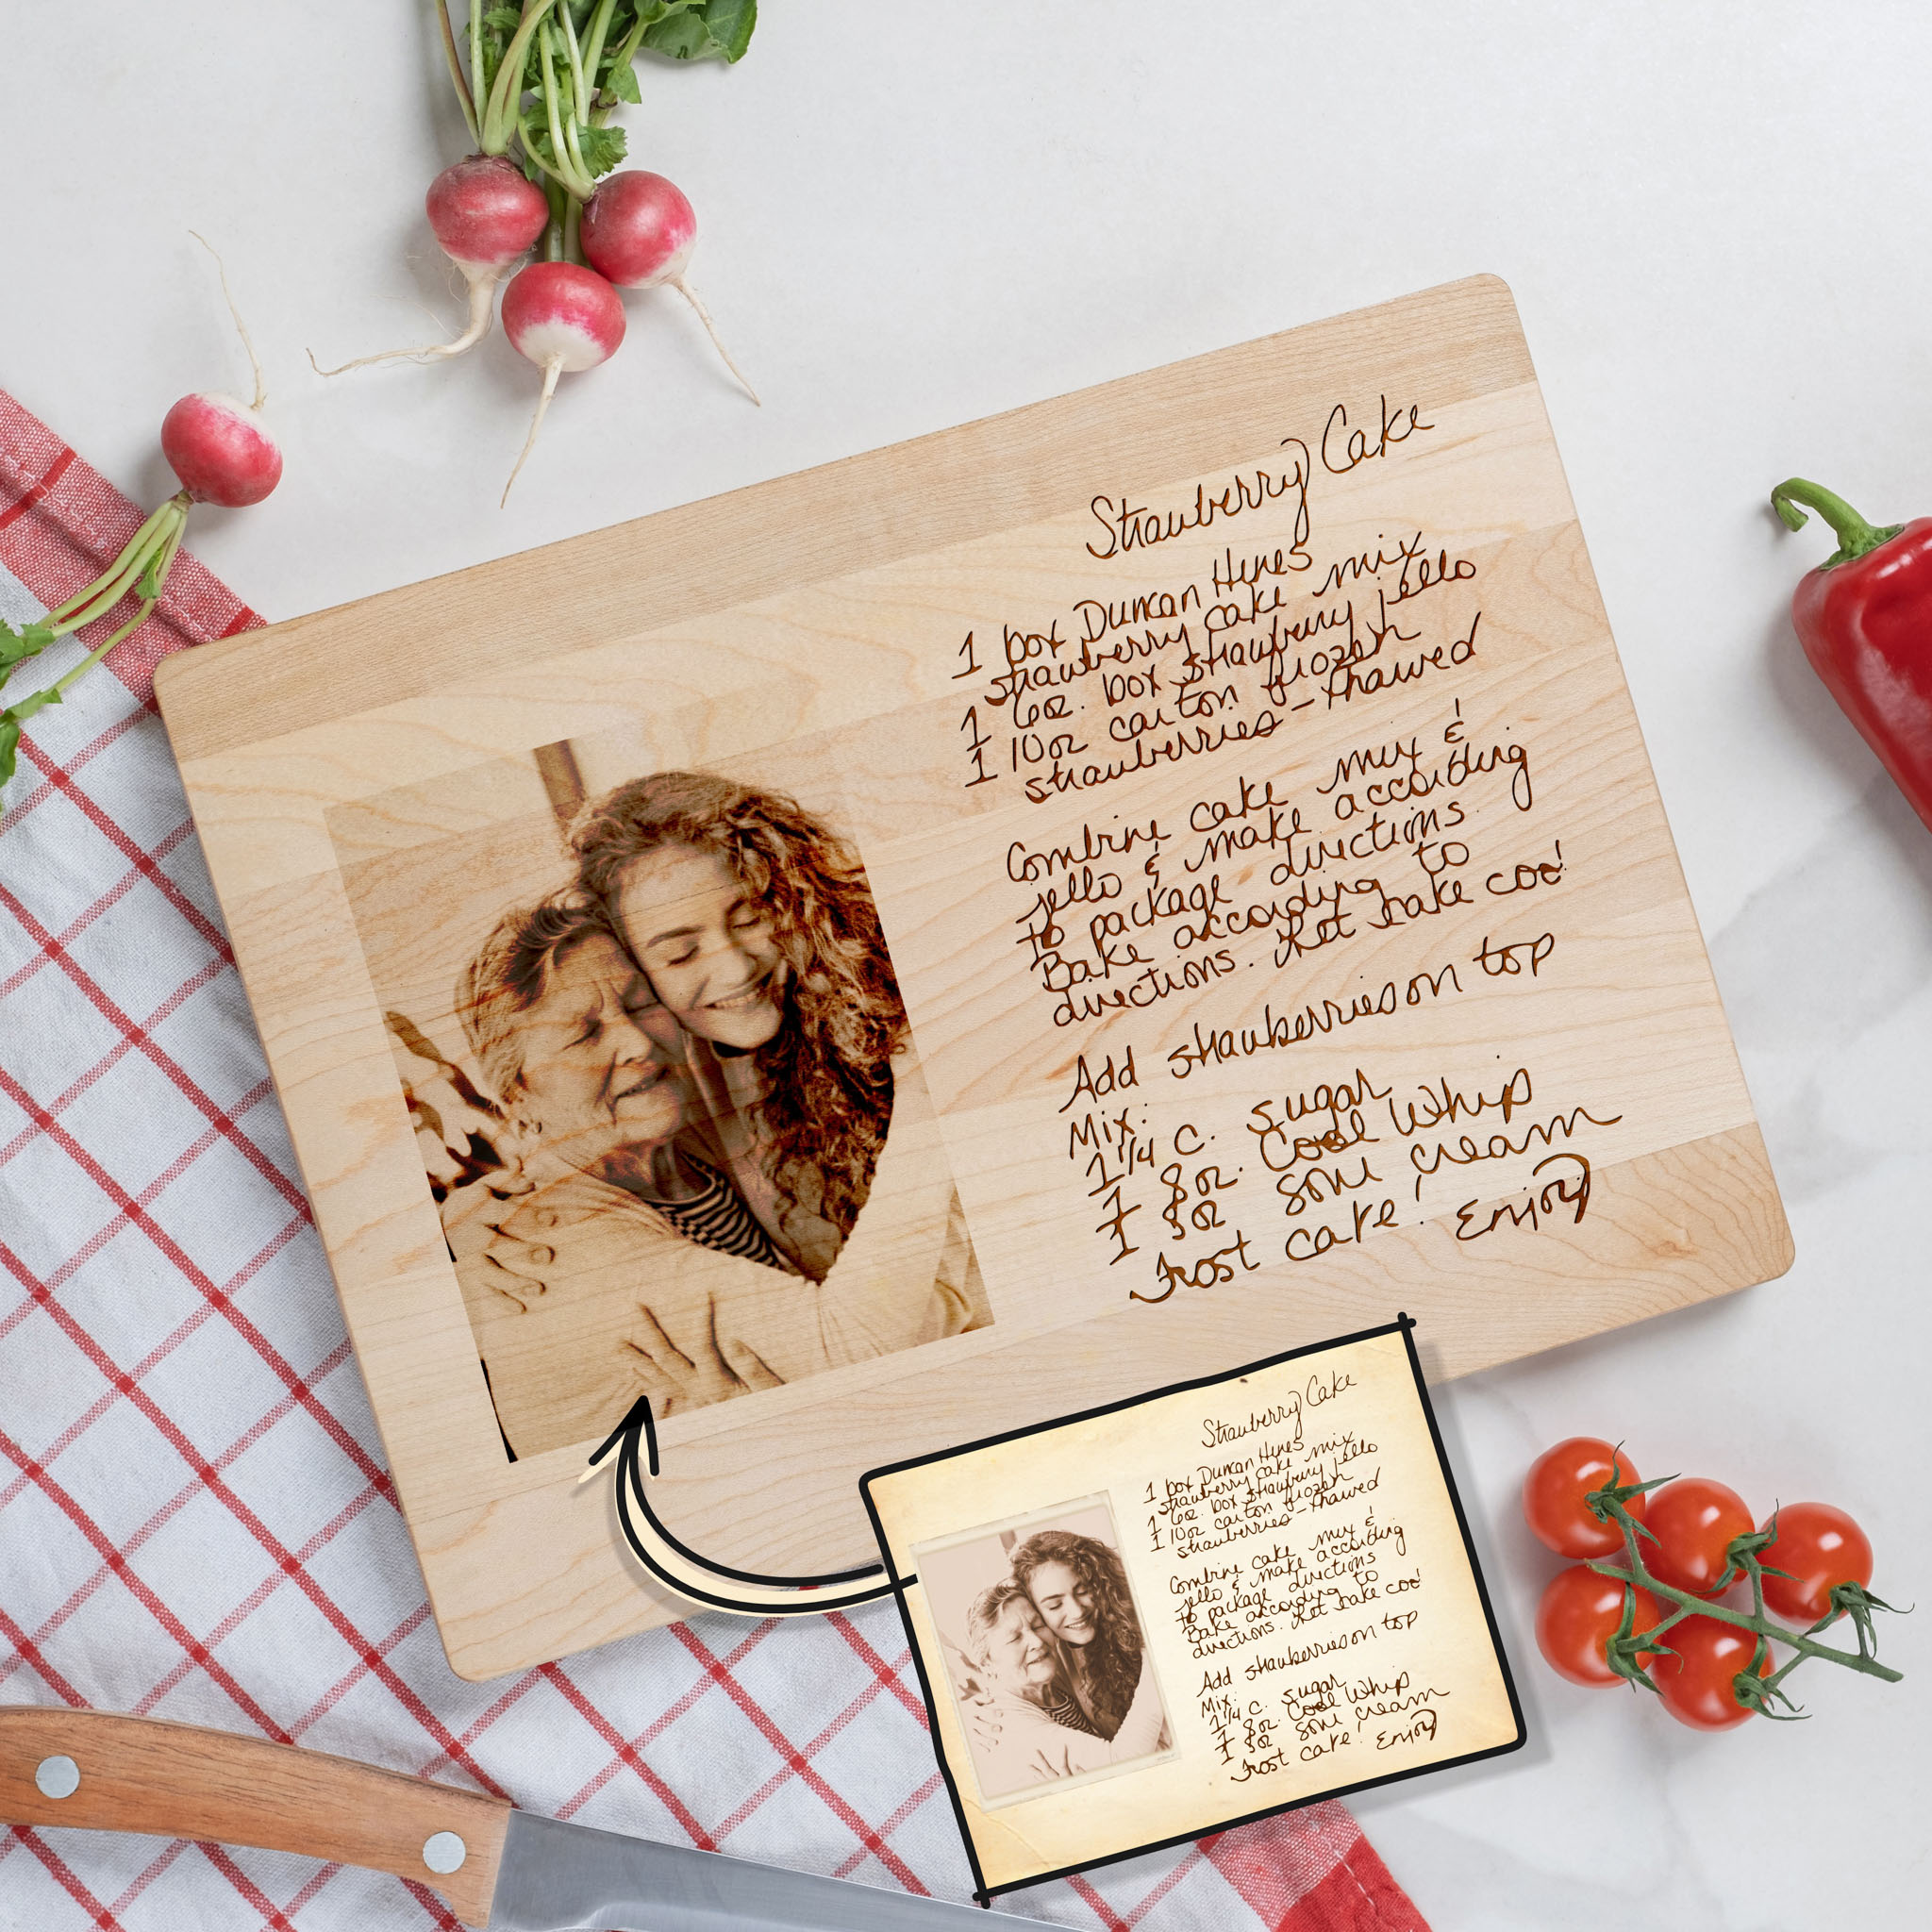 Strawberry Cake
1 box Duncan Hines
strawberry cake mix
1 6oz. box strawberry jello
1 10oz carton frozen
strawberries - thawed
Combine cake mix &
jello & make according
to package directions.
Bake according to
directions. Let cake cool
Add strawberries on top
Mix:
1 1/4 c. sugar
1 8oz. Cool Whip
1 8oz sour cream
Frost cake! Enjoy
Strawberry Cake
1 box Duncan Hines
strawberry cake mix
1 6oz. box strawberry jello
1 10oz carton frozen
strawberries - thawed
Combine cake mix &
jello & make according
to package directions
Bake according to
directions. Let cake cool
Add strawberries on top
Mix:
1 1/4 c. sugar
1 8oz. Cool Whip
1 8oz sour cream
Frost cake! Enjoy